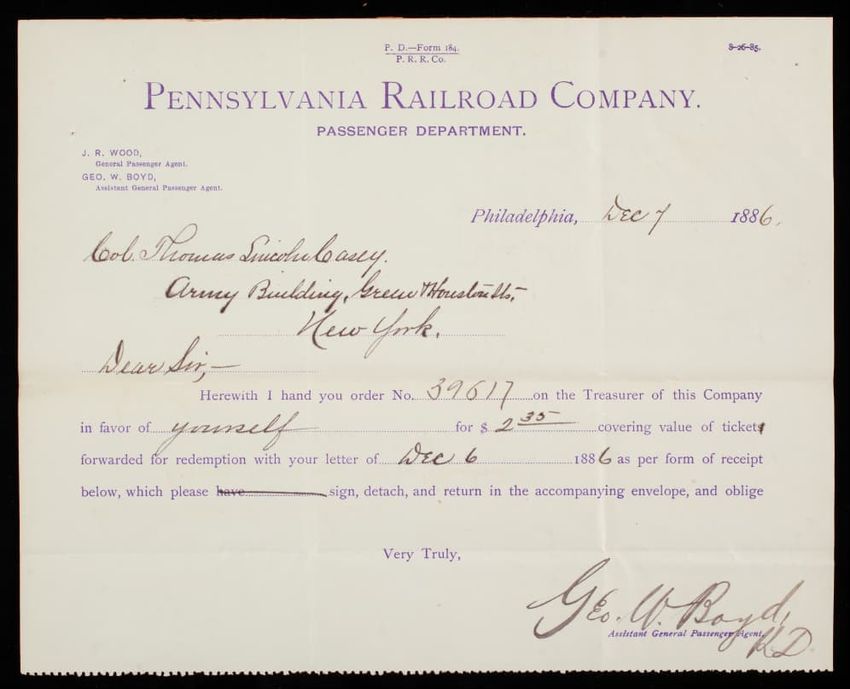 P. D.—Form 184.
P. R. R. Co.
8-26-85.
PENNSYLVANIA RAILROAD COMPANY.
PASSENGER DEPARTMENT.
J. R. WOOD,
General Passenger Agent.
GEO. W. BOYD,
Assistant General Passenger Agent.
Philadelphia, Dec 7 1886.
Col. Thomas Lincoln Casey.
Army Building, Green & Houston Sts,
New York.
Dear Sir,—
Herewith I hand you order No. 39617 on the Treasurer of this Company
in favor of yourself for $ 2 35 covering value of tickets
forwarded for redemption with your letter of Dec 6 1886 as per form of receipt
below, which please have sign, detach, and return in the accompanying envelope, and oblige
Very Truly,
Geo. W. Boyd,
Assistant General Passenger Agent.
K.D.